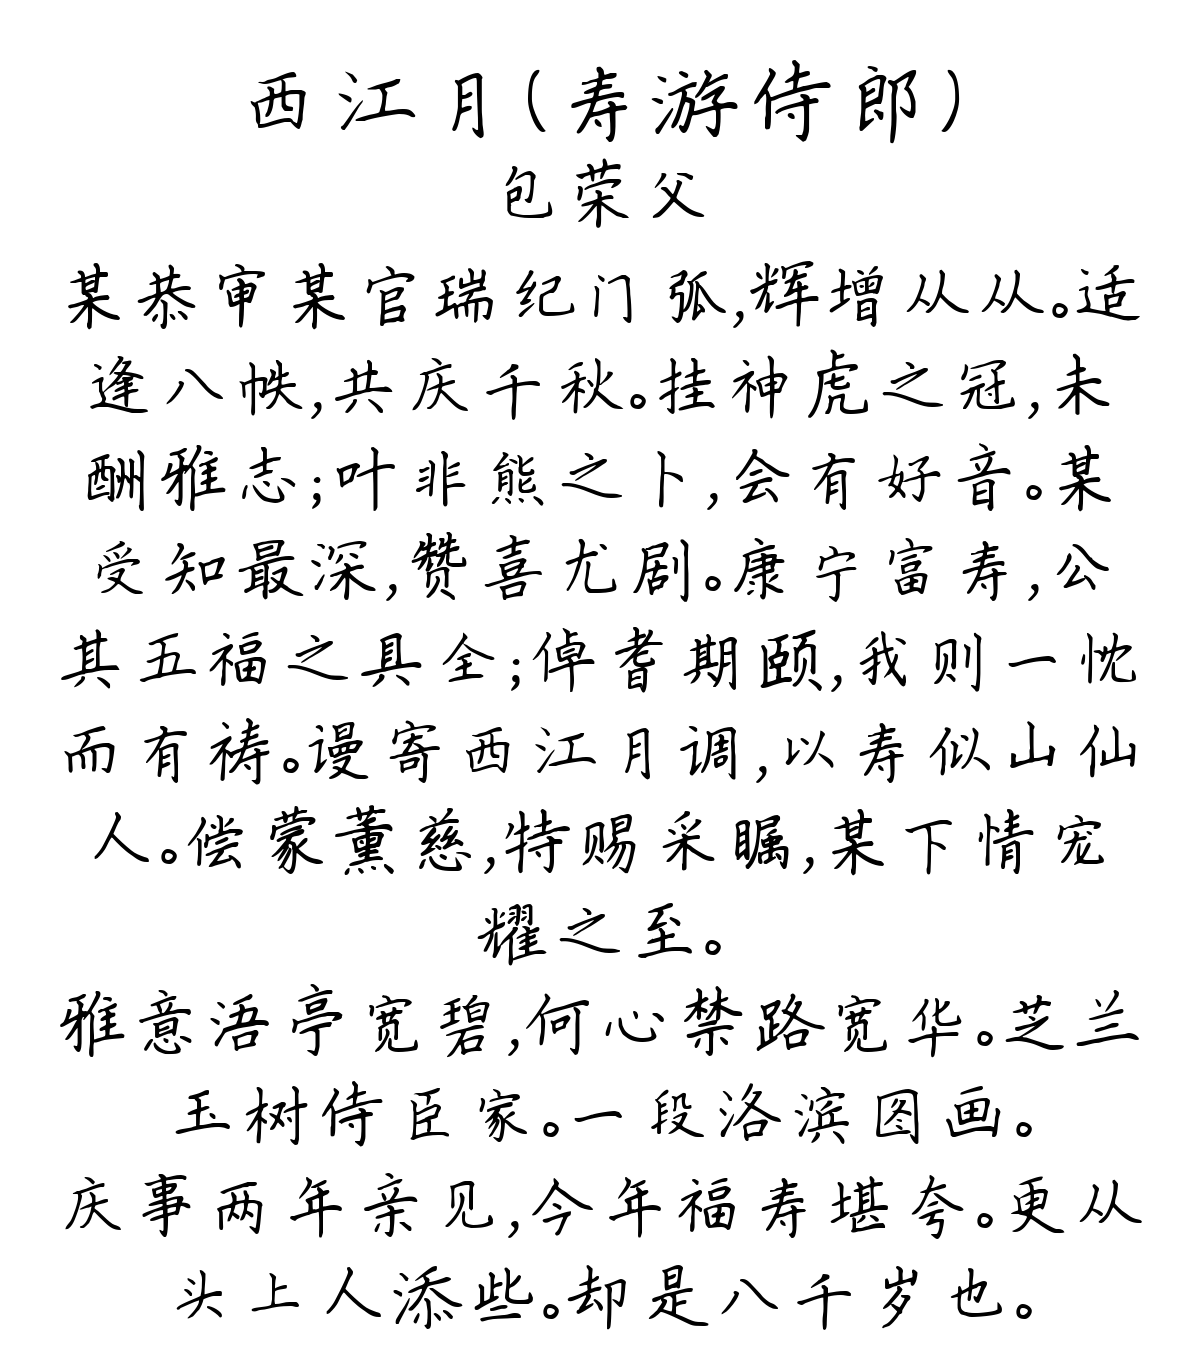 西江月(寿游侍郎)
包荣父
某恭审某官瑞纪门弧,辉增从从。适
逢八帙,共庆千秋。挂神虎之冠,未
酬雅志;叶非熊之卜,会有好音。某
受知最深,赞喜尤剧。康宁富寿,公
其五福之具全;倬耆期颐,我则一忱
而有祷。谩寄西江月调,以寿似山仙
人。偿蒙薰慈,特赐采瞩,某下情宠
耀之至。
雅意浯亭宽碧,何心禁路宽华。芝兰
玉树侍臣家。一段洛滨图画。
庆事两年亲见,今年福寿堪夸。更从
头上人添些。却是八千岁也。